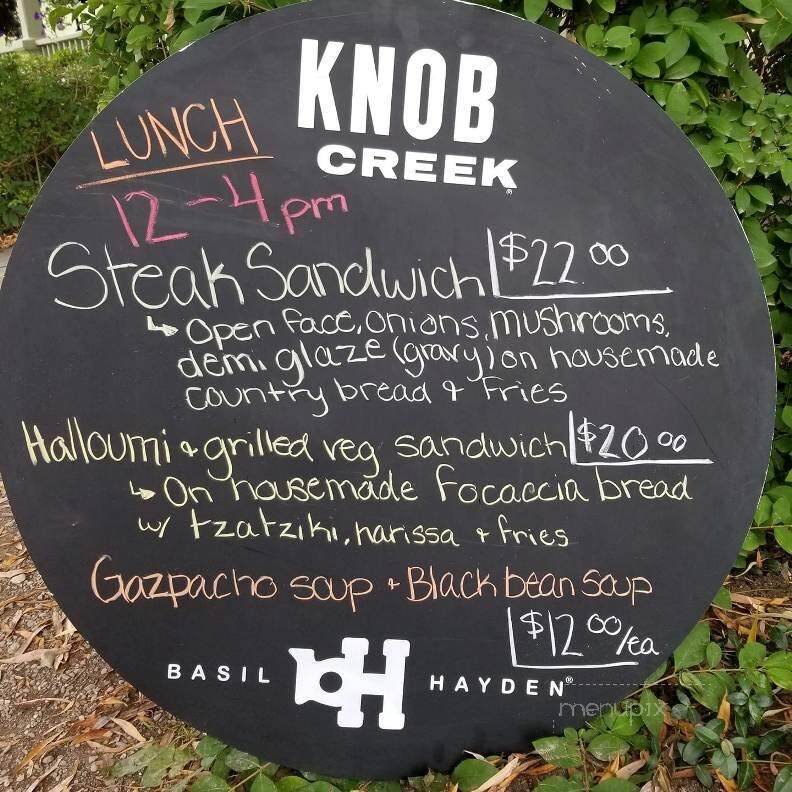 KNOB
CREEK®
LUNCH
12-4 pm
Steak Sandwich $22.00
↳ Open face, onions, mushrooms,
demi glaze (gravy) on housemade
country bread & fries
Halloumi & grilled veg sandwich $20.00
↳ On housemade focaccia bread
w/ tzatziki, harissa & fries
Gazpacho soup & Black bean soup
$12.00/ea
BASIL bH HAYDEN®
menupix